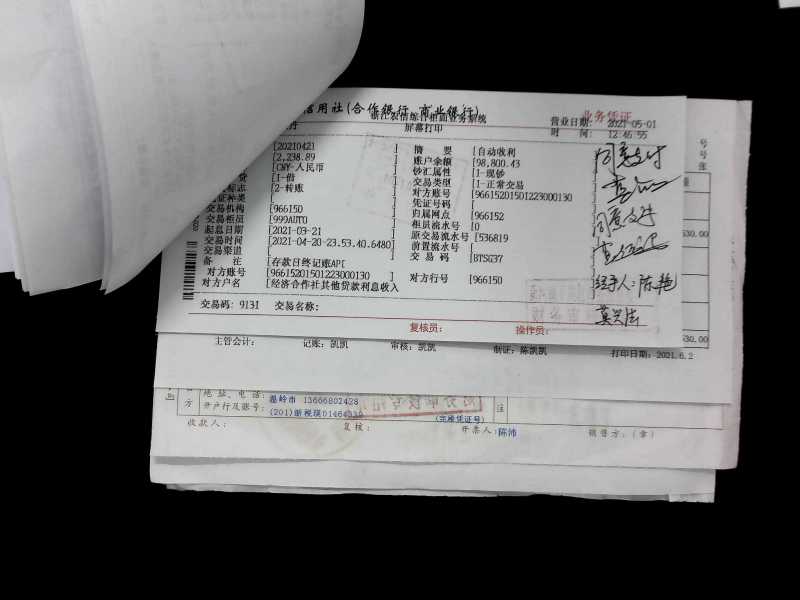 信用社(合作银行、商业银行)
业务凭证
浙江农信综合柜面业务系统
屏幕打印
营业日期: 2021-05-01
时 间: 12:46:55
[20210421 ] 摘 要 [自动收利
[2,238.89 ] 账户余额 [98,800.43
[CNY-人民币 ] 钞汇属性 [1-现钞
贷 [1-借 ] 交易类型 [1-正常交易
标志 [2-转账 ] 对方账号 [966152015012230001​30
证种类 [ ] 凭证号码 [
交易机构 [966150 ] 归属网点 [966152
交易柜员 [999AUTO ] 柜员流水号 [0
起息日期 [2021-03-21 ] 原交易流水号 [536819
交易时间 [2021-04-20-23.53.40.6480] 前置流水号 [
交易渠道 [ ] 交 易 码 [BTSG37
备 注 [存款日终记账API ]
对方账号 [96615201501223000130 ] 对方行号 [966150
对方户名 [经济合作社其他贷款利息收入
同意支付
经手人:陈艳
交易码: 9131 交易名称:
复核员: 操作员:
主管会计: 记账: 凯凯 审核: 凯凯 制证: 陈凯凯 打印日期:2021.6.2
号
号
张
530.00
530.00
方
地 址、电 话: 温岭市 13666802428
开户行及账号:
注
(完税凭证号)
收 款 人: 复 核: 开 票 人: 陈沛 销 售 方:(章)